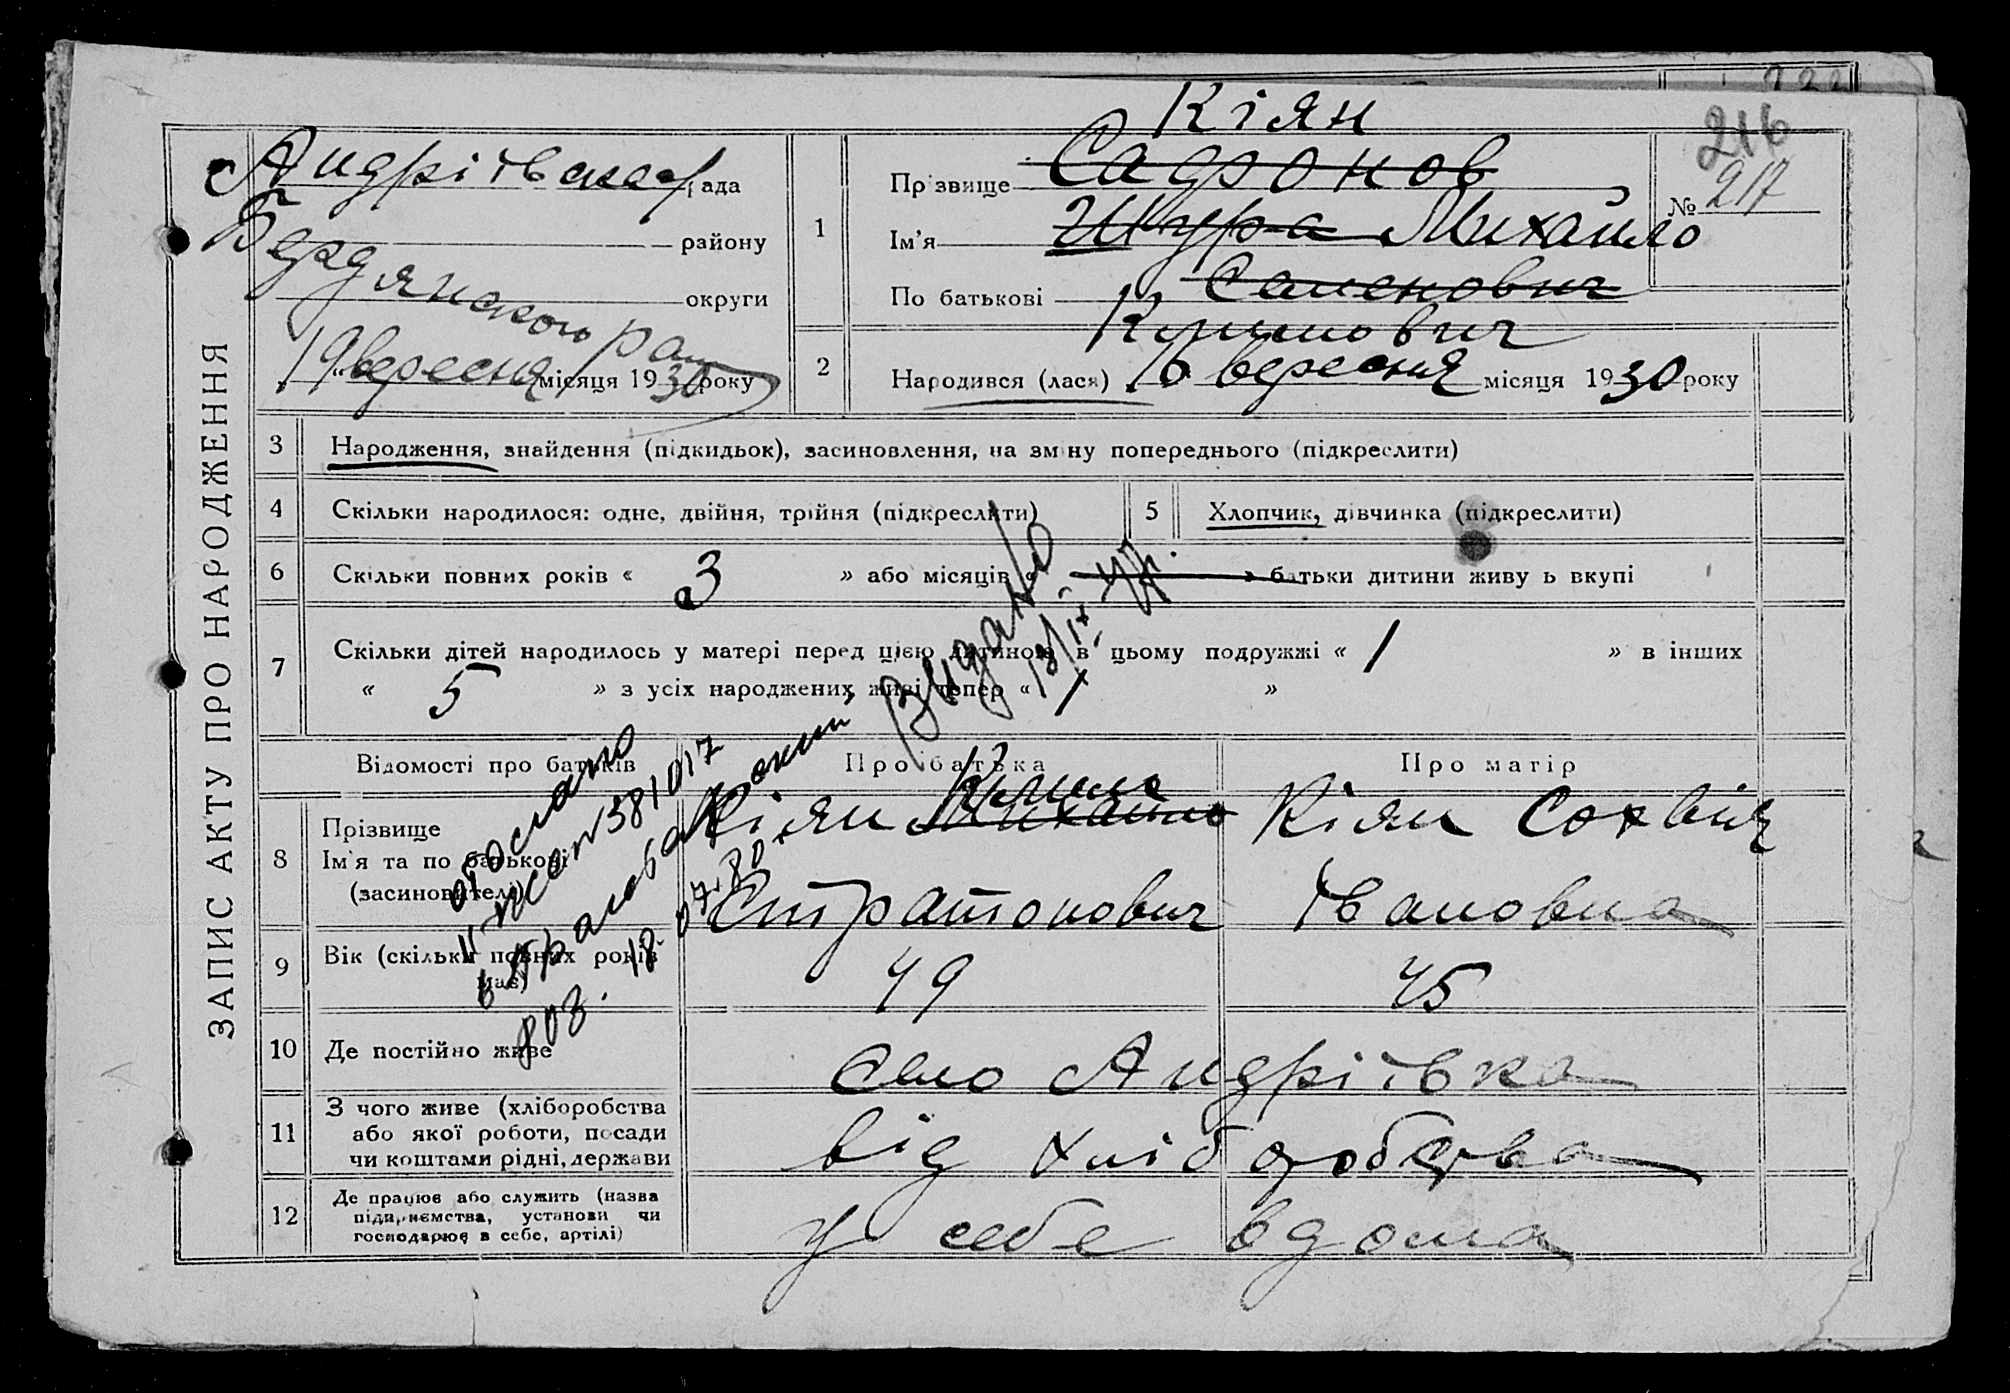 216
ЗАПИС АКТУ ПРО НАРОДЖЕННЯ
Андріївська рада
Бердянського району
округи
19 вересня місяця 1930 року
1
Кіян
Прізвище Сафронов
№ 217
Ім'я Шура Михайло
По батькові Семенович
Климович
2 Народився (лася) 16 вересня місяця 1930 року
3 Народження, знайдення (підкидьок), засиновлення, на зміну попереднього (підкреслити)
4 Скільки народилося: одне, двійня, трійня (підкреслити) 5 Хлопчик, дівчинка (підкреслити)
6 Скільки повних років « 3 » або місяців « » батьки дитини живуть вкупі
7 Скільки дітей народилось у матері перед цією дитиною в цьому подружжі « 1 » в інших
« 5 » з усіх народжених живі тепер « »
Видано
18/IX-47р.
Відомості про батьків Про батька Про матір
8 Прізвище
Ім'я та по батькові
(засиновителі)
Клим
Кіян Михайло Кіян Софвія
Стратонович Івановна
отослано
803. 18.07.80
9 Вік (скільки повних років має) 49 45
10 Де постійно живе село Андріївка
11 З чого живе (хліборобства
або якої роботи, посади
чи коштами рідні, держави
від хліборобства
12 Де працює або служить (назва
підприємства, установи чи
господарює в себе, артілі)
у себе вдома